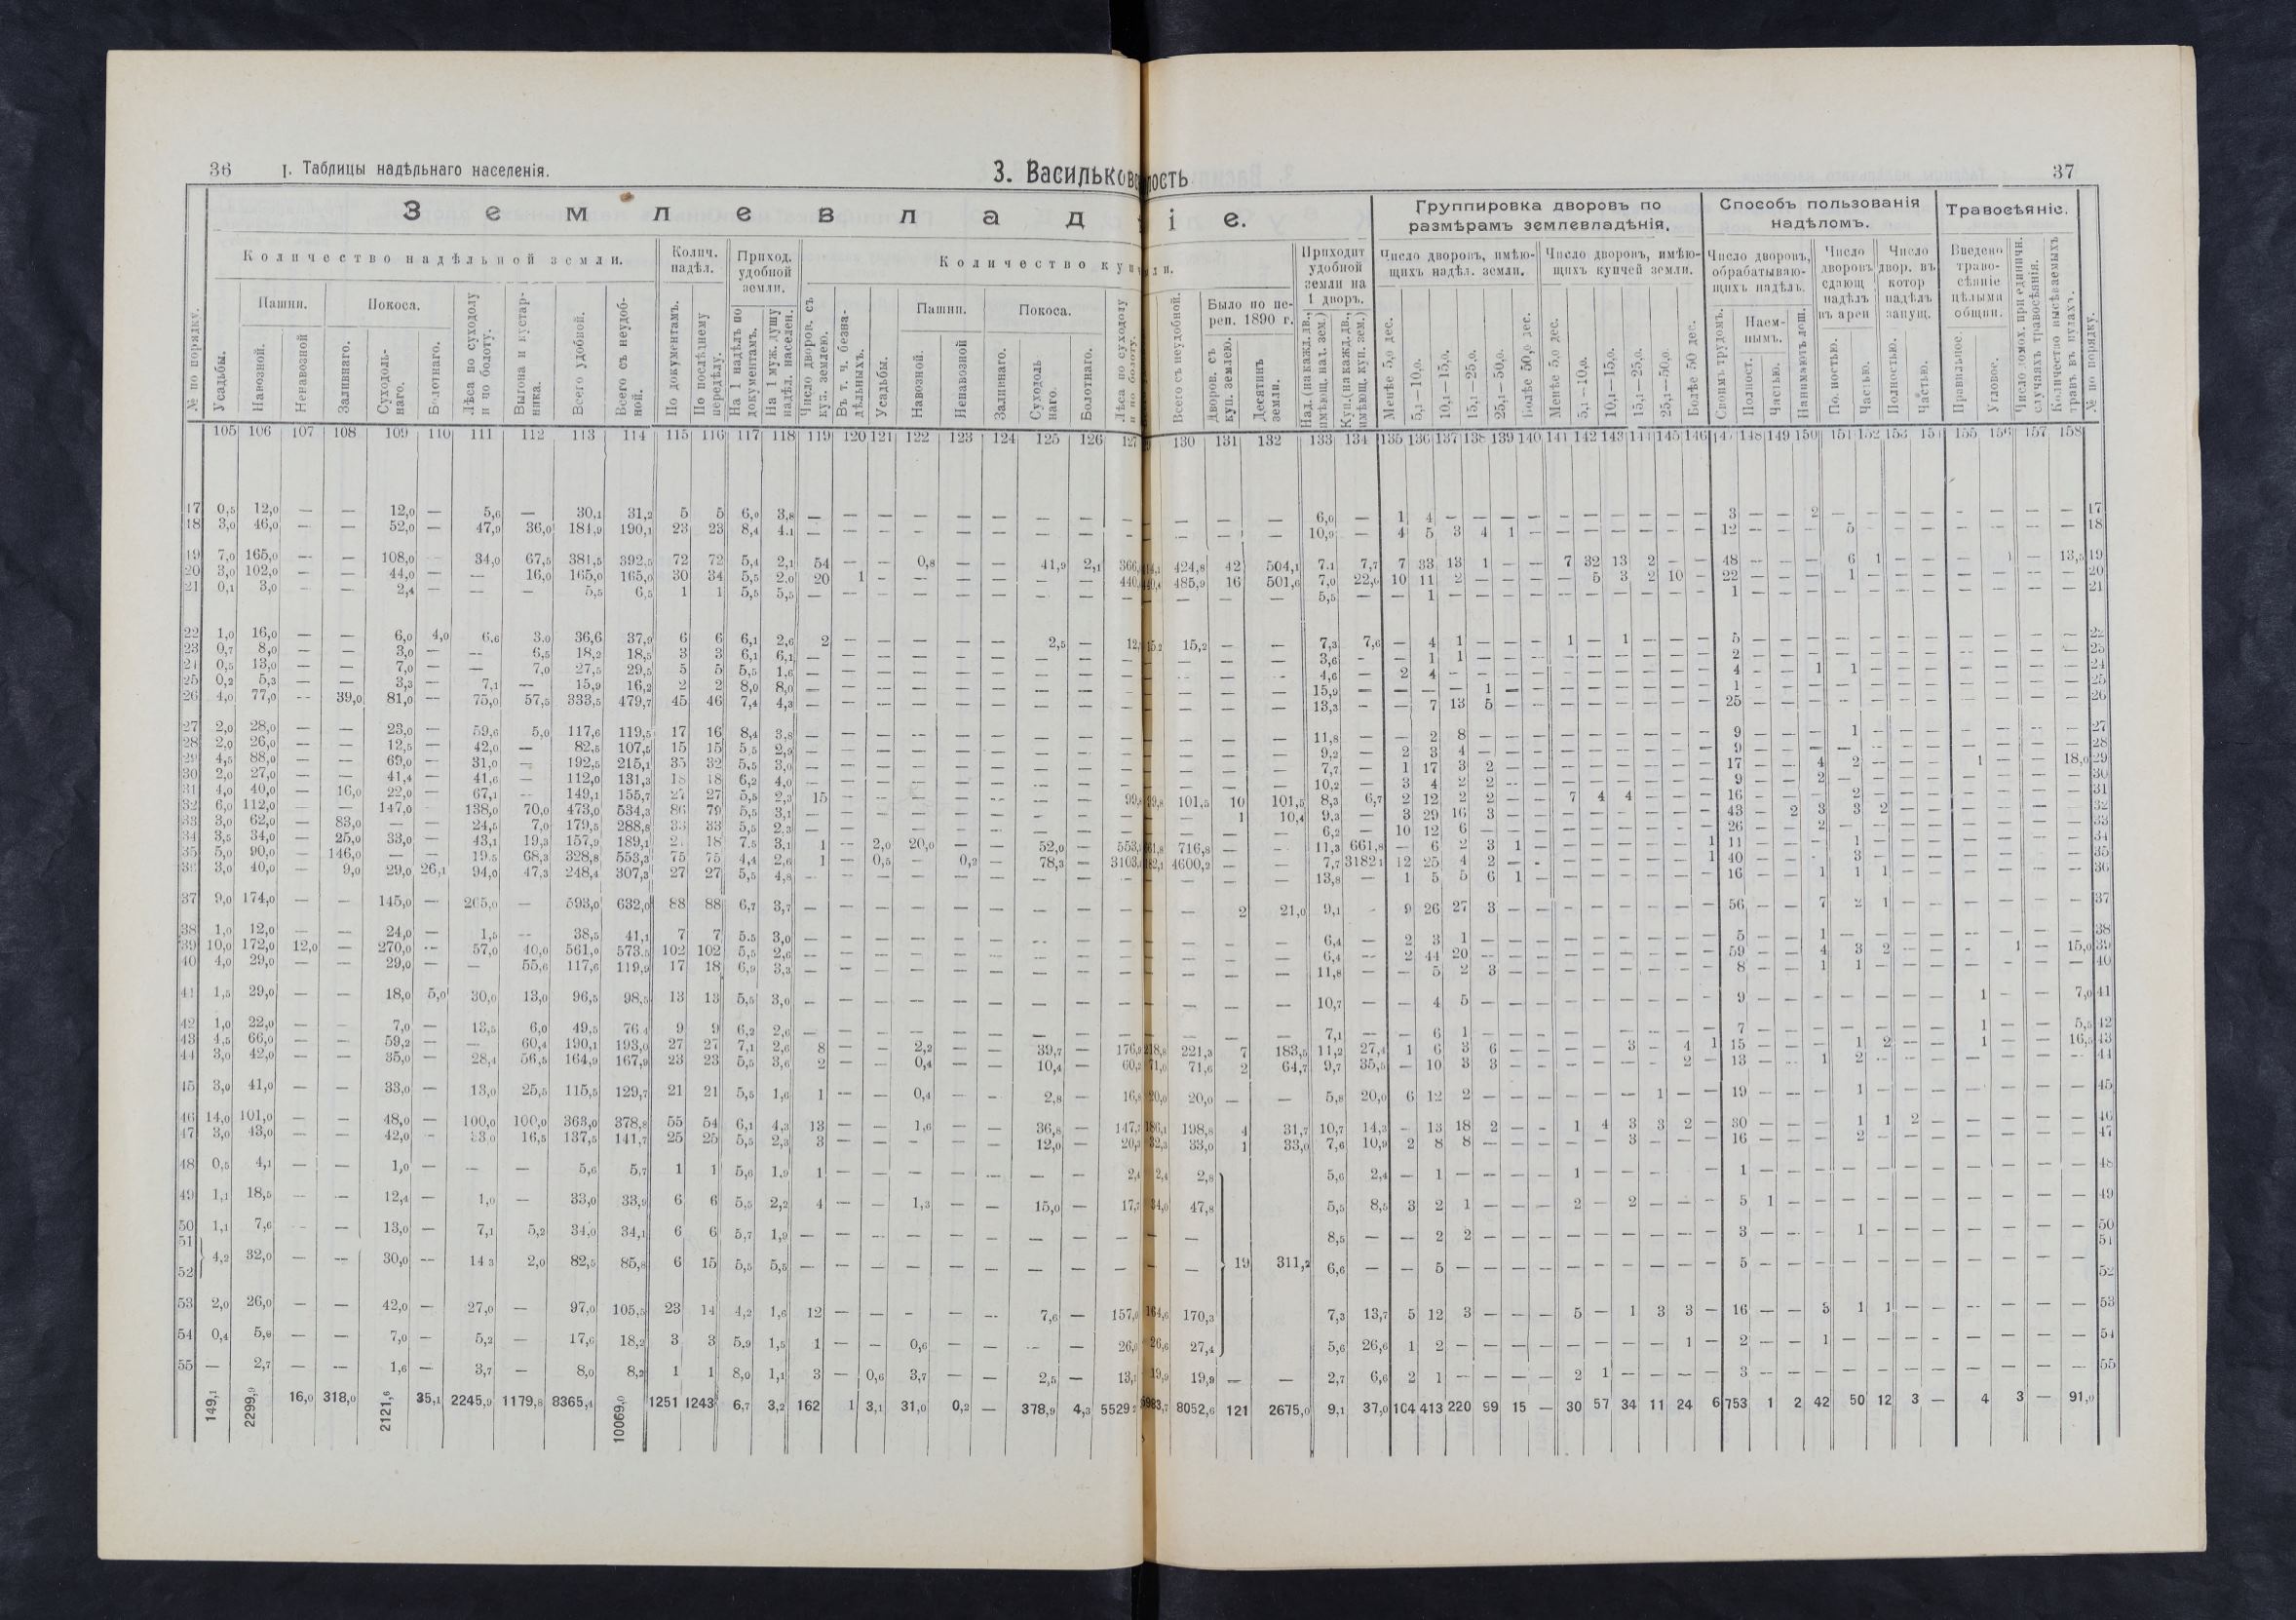 36
I. Таблицы надѣльнаго населенія.
3. Васильковс
лость
37
Землевлад
іе.
Группировка дворовъ по
размѣрамъ землевладѣнія.
Способъ пользованія
надѣломъ.
Травосѣяніе.
Количество надѣльной земли.
Колич.
надѣл.
Приход.
удобной
земли.
Количество куп
ли.
Приходит
удобной
земли на
1 дворъ.
Число дворовъ, имѣю-
щихъ надѣл. земли.
Число дворовъ, имѣю-
щихъ купчей земли.
Число дворовъ,
обрабатываю-
щихъ надѣлъ.
Число
дворовъ
сдающ
надѣлъ
въ арен
Число
двор. въ
котор
надѣлъ
запущ.
Введено
траво-
сѣяніе
цѣлыми
общин.
№ по порядку.
Усадьбы.
Пашни.
Навозной.
Ненавозной
Покоса.
Заливнаго.
Суходоль-
наго.
Болотнаго.
Лѣса по суходолу
и по болоту.
Выгона и кустар-
ника.
Всего удобной.
Всего съ неудоб-
ной.
По документамъ.
По послѣднему
передѣлу.
На 1 надѣлъ по
документамъ.
На 1 муж. душу
надѣл. населен.
Число дворов. съ
куп. землею.
Въ т. ч. безна-
дѣльныхъ.
Усадьбы.
Пашни.
Навозной.
Ненавозной
Покоса.
Заливнаго.
Суходоль
наго.
Болотнаго.
Лѣса по суходолу
и по болоту.
Всего съ неудобной.
Было по пе-
реп. 1890 г.
Дворов. съ
куп. землею.
Десятинъ
земли.
Над. (на кажд. дв.,
имѣющ. над. зем.)
Куп. (на кажд. дв.,
имѣющ. куп. зем.)
Менѣе 5,0 дес.
5,1—10,0.
10,1—15,0.
15,1—25,0.
25,1—50,0.
Болѣе 50,0 дес.
Менѣе 5,0 дес.
5,1—10,0.
10,1—15,0.
15,1—25,0.
25,1—50,0.
Болѣе 50 дес.
Своимъ трудомъ.
Наем-
нымъ.
Полност.
Частью.
Нанимаютъ лош.
Полностью.
Частью.
Полностью.
Частью.
Правильное.
Угловое.
Число домох. при единичн.
случаяхъ травосѣянія.
Количество высѣваемыхъ
травъ въ пудахъ.
№ по порядку.
105 106 107 108 109 110 111 112 113 114 115 116 117 118 119 120 121 122 123 124 125 126 127 130 131 132 133 134 135 136 137 138 139 140 141 142 143 144 145 146 147 148 149 150 151 152 153 154 155 156 157 158
17 0,5 12,0 — — 12,0 — 5,6 — 30,1 31,2 5 5 6,0 3,8 — — — — — — — — — — — — 6,0 — 1 4 — — — — — — — — — — 3 — — 2 — — — — - — — — 17
18 3,0 46,0 — — 52,0 — 47,9 36,0 184,9 190,1 23 23 8,4 4,1 — — — — — — — — — — — — 10,9 — 4 5 3 4 1 — — — — — — — 12 — — — 5 — — — — — — — 18
19 7,0 165,0 — — 108,0 — 34,0 67,5 381,5 392,5 72 72 5,4 2,1 54 — — 0,8 — — 41,9 2,1 366, 424,8 42 504,1 7,1 7,7 7 33 13 1 — — 7 32 13 2 — — 48 — — — 6 1 — — — 1 — 13,5 19
20 3,0 102,0 — — 44,0 — — 16,0 165,0 165,0 30 34 5,5 2,0 20 1 — — — — — — 440, 485,9 16 501,6 7,0 22,6 10 11 2 — — — — 5 3 2 10 — 22 — — — 1 — — — — — — — 20
21 0,1 3,0 — — 2,4 — — — 5,5 6,5 1 1 5,5 5,5 — — — — — — — — — — — — 5,5 — — 1 — — — — — — — — — — 1 — — — — — — — — — — — 21
22 1,0 16,0 — — 6,0 4,0 6,6 3,0 36,6 37,9 6 6 6,1 2,6 2 — — — — — 2,5 — 12, 15,2 15,2 — — 7,3 7,6 — 4 1 — — — 1 — 1 — — — 5 — — — — — — — — — — — 22
23 0,7 8,0 — — 3,0 — — 6,5 18,2 18,5 3 3 6,1 6,1 — — — — — — — — — — — — 3,6 — — 1 1 — — — — — — — — — 2 — — — — — — — — — — — 23
24 0,5 13,0 — — 7,0 — — 7,0 27,5 29,5 5 5 5,5 1,6 — — — — — — — — — — — — 4,6 — 2 4 — — — — — — — — — — 4 — — 1 1 — — — — — — — 24
25 0,2 5,3 — — 3,3 — 7,1 — 15,9 16,2 2 2 8,0 8,0 — — — — — — — — — — — — 15,9 — — — — 1 — — — — — — — — 1 — — — — — — — — — — — 25
26 4,0 77,0 — 39,0 81,0 — 75,0 57,5 333,5 479,7 45 46 7,4 4,3 — — — — — — — — — — — — 13,3 — — 7 13 5 — — — — — — — — 25 — — — — — — — — — — — 26
27 2,0 28,0 — — 23,0 — 59,6 5,0 117,6 119,5 17 16 8,4 3,8 — — — — — — — — — — — — 11,8 — — 2 8 — — — — — — — — — 9 — — — 1 — — — — — — — 27
28 2,0 26,0 — — 12,5 — 42,0 — 82,5 107,5 15 15 5,5 2,9 — — — — — — — — — — — — 9,2 — 2 3 4 — — — — — — — — — 9 — — — — — — — — — — — 28
29 4,5 88,0 — — 69,0 — 31,0 — 192,5 215,1 35 32 5,5 3,0 — — — — — — — — — — — — 7,7 — 1 17 3 2 — — — — — — — — 17 — — 4 2 — — — 1 — — 18,0 29
30 2,0 27,0 — — 41,4 — 41,6 — 112,0 131,3 18 18 6,2 4,0 — — — — — — — — — — — — 10,2 — 3 4 2 2 — — — — — — — — 9 — — 2 — — — — — — — — 30
31 4,0 40,0 — 16,0 22,0 — 67,1 — 149,1 155,7 27 27 5,5 2,3 15 — — — — — — — 99,8 101,5 10 101,5 8,3 6,7 2 12 2 2 — — 7 4 4 — — — 16 — — — 2 — — — — — — — 31
32 6,0 112,0 — — 147,0 — 138,0 70,0 473,0 534,3 86 79 5,5 3,1 — — — — — — — — — — 1 10,4 9,3 — 3 29 16 3 — — — — — — — — 43 — 2 3 3 2 — — — — — — 32
33 3,0 62,0 — 83,0 — — 24,5 7,0 179,5 288,8 33 33 5,5 2,3 — — — — — — — — — — — — 6,2 — 10 12 6 — — — — — — — — — 26 — — 2 — — — — — — — — 33
34 3,5 34,0 — 25,0 33,0 — 43,1 19,3 157,9 189,1 18 7,5 3,1 1 — 2,0 20,0 — — 52,0 — 553, 661,8 716,8 — — 11,3 661,8 — 6 2 3 1 — — — — — — 1 11 — — — 1 — — — — — — — 34
35 5,0 90,0 — 146,0 — — 19,5 68,3 328,8 553,3 75 75 4,4 2,6 1 — 0,5 — 0,2 — 78,3 — 3103, 4600,2 — — 7,7 3182,1 12 25 4 2 — — — — — — — 1 40 — — — 3 — — — — — — — 35
36 3,0 40,0 — 9,0 29,0 26,1 94,0 47,3 248,4 307,3 27 27 5,5 4,8 — — — — — — — — — — — — 13,8 — 1 5 5 6 1 — — — — — — — 16 — — 1 1 1 — — — — — — 36
37 9,0 174,0 — — 145,0 — 265,0 — 593,0 632,0 88 88 6,7 3,7 — — — — — — — — — — 2 21,0 9,1 - 9 26 27 3 — — — — — — — — 56 — — 7 2 1 — — — — — — 37
38 1,0 12,0 — — 24,0 — 1,5 — 38,5 41,1 7 7 5,5 3,0 — — — — — — — — — — — — 6,4 — 2 3 1 — — — — — — — — — 5 — — 1 — — — — — — — — 38
39 10,0 172,0 12,0 — 270,0 — 57,0 40,0 561,0 573,5 102 102 5,5 2,6 — — — — — — — — — — — — 6,4 — 2 44 20 — — — — — — — — — 59 — — 4 3 2 — — - 1 — 15,0 39
40 4,0 29,0 — — 29,0 — — 55,6 117,6 119,9 17 18 6,9 3,3 — — — — — — — — — — — — 11,8 — — 5 2 3 — — — — — — — — 8 — — 1 1 — — — — — — — 40
41 1,5 29,0 — — 18,0 5,0 30,0 13,0 96,5 98,5 13 13 5,5 3,0 — — — — — — — — — — — — 10,7 — — 4 5 — — — — — — — — — 9 — — — — — — — 1 — — 7,0 41
42 1,0 22,0 — — 7,0 — 13,5 6,0 49,5 76,4 9 9 6,2 2,6 — — — — — — — — — — — — 7,1 — — 6 1 — — — — — — — — — 7 — — — — — — — 1 — — 5,5 42
43 4,5 66,0 — — 59,2 — — 60,4 190,1 193,0 27 27 7,1 2,6 8 — — 2,2 — — 39,7 — 176,9 221,3 7 183,5 11,2 27,4 1 6 3 6 — — — — 3 — 4 1 15 — — — 1 2 — — 1 — — 16,5 43
44 3,0 42,0 — — 35,0 — 28,4 56,5 164,9 167,9 23 23 5,5 3,6 2 — — 0,4 — — 10,4 — 60, 71,6 2 64,7 9,7 35,5 — 10 3 3 — — — — — — 2 — 13 — — 1 2 — — — — — — — 44
45 3,0 41,0 — — 33,0 — 13,0 25,5 115,5 129,7 21 21 5,5 1,6 1 — — 0,4 — — 2,8 — 16,8 20,0 20,0 — — 5,8 20,0 6 12 2 — — — — — — 1 — — 19 — — — 1 — — — — — — — 45
46 14,0 101,0 — — 48,0 — 100,0 100,0 363,0 378,8 55 54 6,1 4,3 13 — — 1,6 — — 36,8 — 147, 186,1 198,8 4 31,7 10,7 14,3 — 13 18 2 — — 1 4 3 3 2 — 30 — — — 1 1 2 — — — — — 46
47 3,0 43,0 — — 42,0 - 33,0 16,5 137,5 141,7 25 25 5,5 2,3 3 — — — — — 12,0 — 20, 32,3 33,0 1 33,0 7,6 10,9 2 8 8 — — — — — 3 — — — 16 — — — 2 — — — — — — — 47
48 0,5 4,1 — — 1,0 — — — 5,6 5,7 1 1 5,6 1,9 1 — — — — — — — 2,4 2,4 2,8 5,6 2,4 — 1 — — — — 1 — — — — — 1 — — — — — — — — — — — 48
49 1,1 18,5 — — 12,4 — 1,0 — 33,0 33,9 6 6 5,5 2,2 4 — — 1,3 — — 15,0 — 17,7 34,0 47,8 5,5 8,5 3 2 1 — — — 2 — 2 — — — 5 1 — — — — — — — — — — 49
50 1,1 7,6 — — 13,0 — 7,1 5,2 34,0 34,1 6 6 5,7 1,9 — — — — — — — — — — 8,5 — — 2 2 — — — — — — — — — 3 — — — 1 — — — — — — — 50
51
52 4,2 32,0 — — 30,0 — 14,3 2,0 82,5 85,8 6 15 5,5 5,5 — — — — — — — — — — 19 311,2 6,6 — — 5 — — — — — — — — — — 5 — — — — — — — — — — — 51 52
53 2,0 26,0 — — 42,0 — 27,0 — 97,0 105,5 23 14 4,2 1,6 12 — — — — — 7,6 — 157,0 164,6 170,3 7,3 13,7 5 12 3 — — — 5 — 1 3 3 — 16 — — 3 1 1 — — — — — — 53
54 0,4 5,0 — — 7,0 — 5,2 — 17,6 18,2 3 3 5,9 1,5 1 — — 0,6 — — — — 26,0 26,6 27,4 5,6 26,6 1 2 — — — — — — — — 1 — 2 — — 1 — — — — — — — — 54
55 — 2,7 — — 1,6 — 3,7 — 8,0 8,2 1 1 8,0 1,1 3 — 0,6 3,7 — — 2,5 — 13,1 19,9 19,9 — — 2,7 6,6 2 1 — — — — 2 1 — — — — 3 — — — — — — — — — — — 55
149,1 2299,9 16,0 318,0 2121,6 35,1 2245,9 1179,8 8365,4 10069,0 1251 1243 6,7 3,2 162 1 3,1 31,0 0,2 — 378,9 4,3 5529 5983,7 8052,6 121 2675,0 9,1 37,0 104 413 220 99 15 — 30 57 34 11 24 6 753 1 2 42 50 12 3 — 4 3 — 91,0